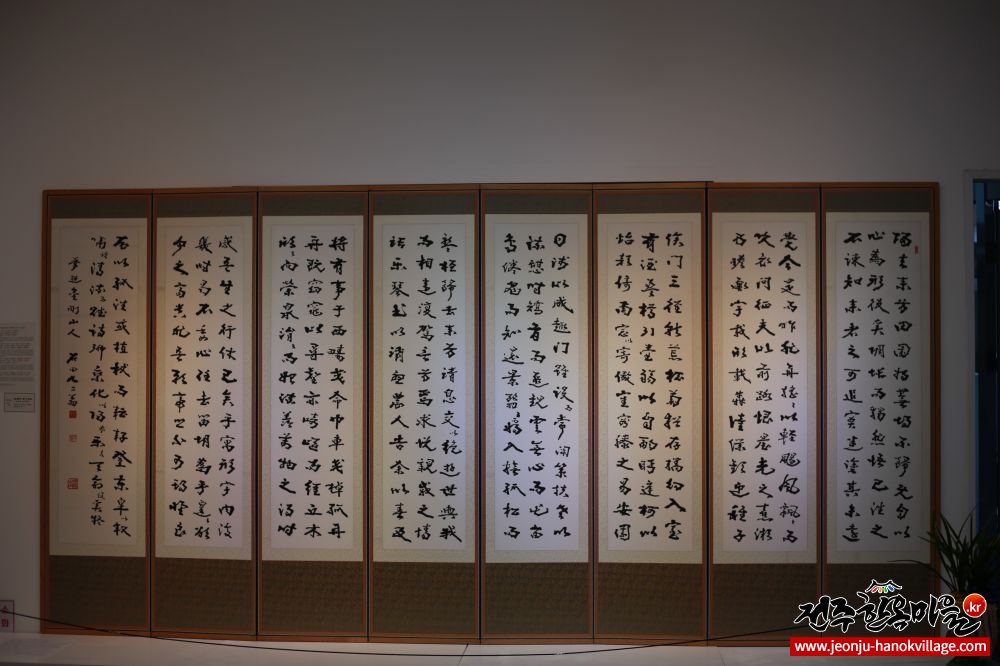 歸去來兮田園將蕪胡不歸既自以
心爲形役奚惆悵而獨悲悟已往之
不諫知來者之可追實迷塗其未遠
覺今是而昨非舟搖搖以輕颺風飄飄而
吹衣問征夫以前路恨晨光之熹微
乃瞻衡宇載欣載奔僮僕歡迎稚子
候門三徑就荒松菊猶存携幼入室
有酒盈樽引壺觴以自酌眄庭柯以
怡顔倚南窓以寄傲審容膝之易安園
日涉以成趣門雖設而常關策扶老以
流憩時矯首而遐觀雲無心而出岫
鳥倦飛而知還景翳翳以將入撫孤松而
盤桓歸去來兮請息交以絶遊世與我
而相遺復駕言兮焉求悅親戚之情
話樂琴書以消憂農人告余以春及
將有事于西疇或命巾車或棹孤舟
既窈窕以尋壑亦崎嶇而經丘木
欣欣向榮泉涓涓而始流善萬物之得時
感吾生之行休已矣乎寓形宇內復
幾時曷不委心任去留胡爲乎遑遑欲
何之富貴非吾願帝鄕不可期懷良
辰以孤往或植杖而耘耔登東皐以舒
嘯臨淸流賦詩聊乘化以歸盡樂夫天命復奚疑
山人 石田九二翁
전주한옥마을.kr
www.jeonju-hanokvillage.com